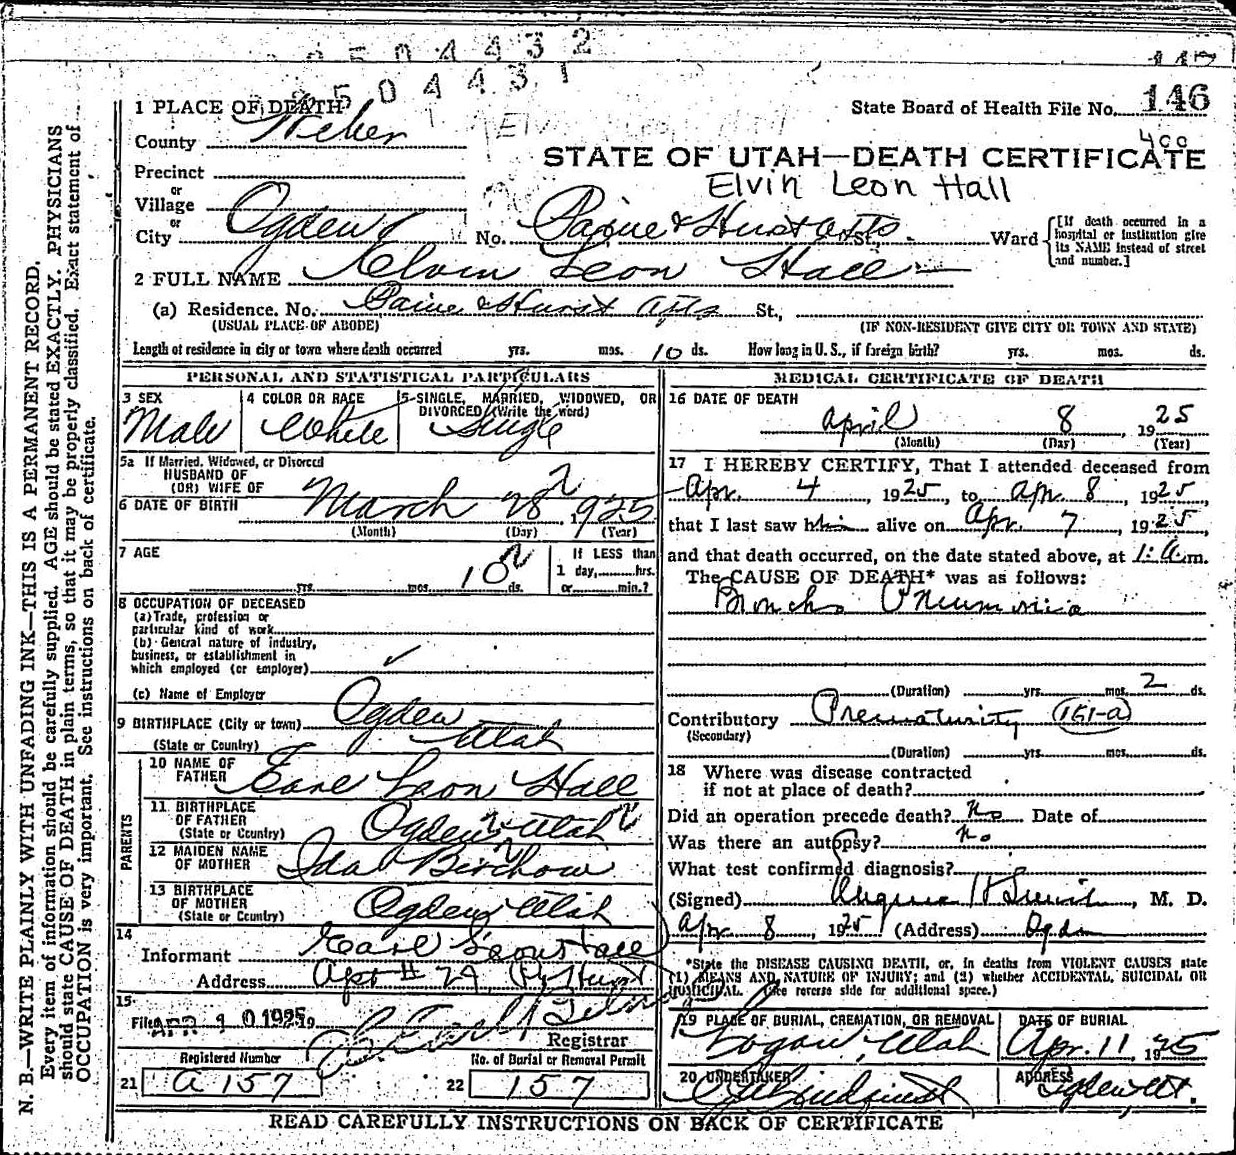 2504432
2504431
146
1 PLACE OF DEATH
State Board of Health File No. 146
County Weber
400
STATE OF UTAH—DEATH CERTIFICATE
Precinct
Elvin Leon Hall
or
Village
or
City Ogden No. Paine & Hurst Apts St., Ward
[If death occurred in a hospital or institution give its NAME instead of street and number.]
2 FULL NAME Elvin Leon Hall
(a) Residence. No. Paine & Hurst Apts St.,
(USUAL PLACE OF ABODE) (IF NON-RESIDENT GIVE CITY OR TOWN AND STATE)
Length of residence in city or town where death occurred yrs. mos. 10 ds. How long in U. S., if foreign birth? yrs. mos. ds.
PERSONAL AND STATISTICAL PARTICULARS
3 SEX Male
4 COLOR OR RACE White
5 SINGLE, MARRIED, WIDOWED, OR DIVORCED (Write the word) Single
5a If Married, Widowed, or Divorced
HUSBAND OF
(OR) WIFE OF
6 DATE OF BIRTH March 28 1925
(Month) (Day) (Year)
7 AGE yrs. mos. 10 ds.
If LESS than 1 day, hrs. or min.?
8 OCCUPATION OF DECEASED
(a) Trade, profession or
particular kind of work
(b) General nature of industry,
business, or establishment in
which employed (or employer)
(c) Name of Employer
9 BIRTHPLACE (City or town) Ogden
(State or Country) Utah
PARENTS
10 NAME OF FATHER Earl Leon Hall
11 BIRTHPLACE OF FATHER (State or Country) Ogden Utah
12 MAIDEN NAME OF MOTHER Ida Birchow
13 BIRTHPLACE OF MOTHER (State or Country) Ogden Utah
14
Informant Earl Leon Hall
Address Apt # 29 P & Hurst
15
Filed APR 10 1925 19
Registrar
Registered Number No. of Burial or Removal Permit
21 A 157 22 157
MEDICAL CERTIFICATE OF DEATH
16 DATE OF DEATH
April 8, 1925
(Month) (Day) (Year)
17 I HEREBY CERTIFY, That I attended deceased from
Apr. 4, 1925, to Apr. 8, 1925,
that I last saw him alive on Apr. 7, 1925,
and that death occurred, on the date stated above, at 1: a.m.
The CAUSE OF DEATH* was as follows:
Broncho Pneumonia
(Duration) yrs. mos. 2 ds.
Contributory Prematurity 161-a
(Secondary)
(Duration) yrs. mos. ds.
18 Where was disease contracted
if not at place of death?
Did an operation precede death? No Date of
Was there an autopsy? no
What test confirmed diagnosis?
(Signed) M. D.
Apr 8, 1925 (Address) Ogden
*State the DISEASE CAUSING DEATH, or, in deaths from VIOLENT CAUSES state
(1) MEANS AND NATURE OF INJURY; and (2) whether ACCIDENTAL, SUICIDAL OR
HOMICIDAL. (See reverse side for additional space.)
19 PLACE OF BURIAL, CREMATION, OR REMOVAL Logan, Utah
DATE OF BURIAL Apr. 11, 1925
20 UNDERTAKER
ADDRESS Ogden Ut.
READ CAREFULLY INSTRUCTIONS ON BACK OF CERTIFICATE
N. B.—WRITE PLAINLY WITH UNFADING INK—THIS IS A PERMANENT RECORD.
Every item of information should be carefully supplied. AGE should be stated EXACTLY. PHYSICIANS
should state CAUSE OF DEATH in plain terms, so that it may be properly classified. Exact statement of
OCCUPATION is very important. See instructions on back of certificate.